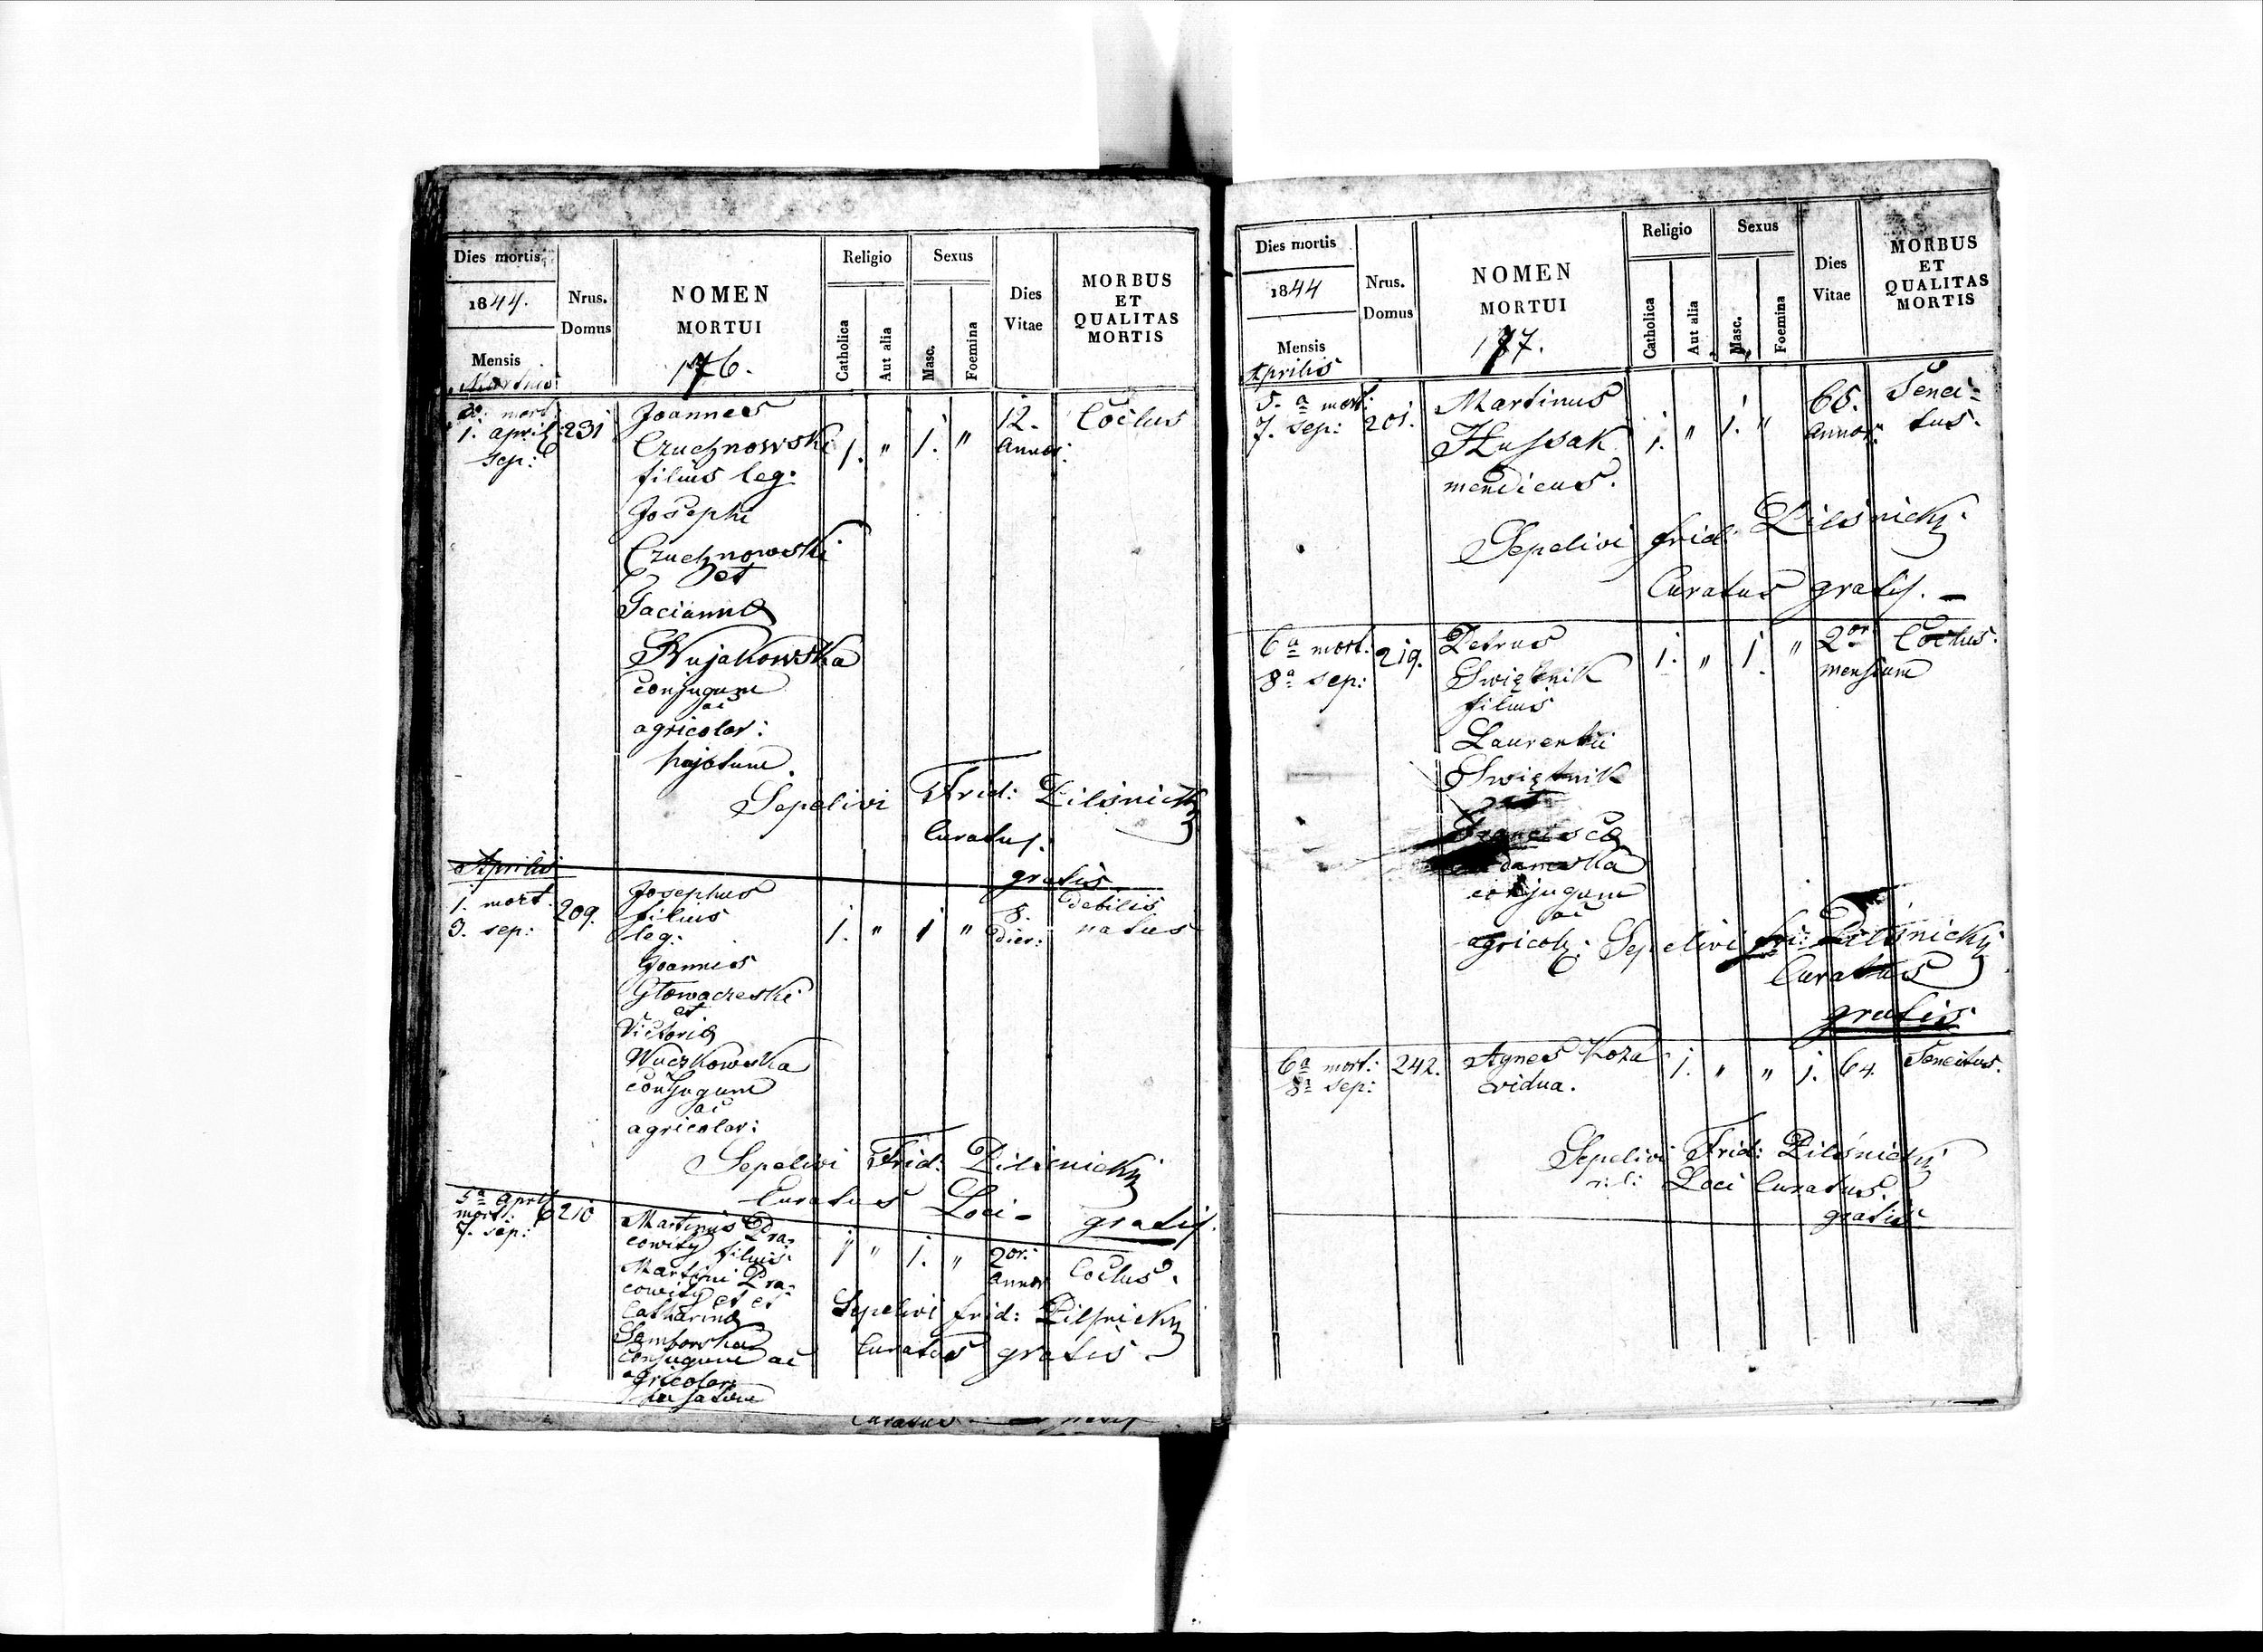 Dies mortis
1844.
Mensis
Martius
Nrus.
Domus
NOMEN
MORTUI
176.
Religio
Catholica
Aut alia
Sexus
Masc.
Foemina
Dies
Vitae
MORBUS
ET
QUALITAS
MORTIS
mort:
1. april 231 Joannes 12. Coctus
sep: Czuchnowski 1. " 1. " Annor:
filius leg:
Josephi
Czuchnowski
et
Taciannæ
Wujakowska
conjugum
ac
agricolar:
Sepelivi Frid: Pilsnicky
Curatus.
gratis
Aprilis
1. mort. 209. Josephus 8. debilis
3. sep: filius 1. " 1 " dier: natus
leg:
Joannis
Głowaczeski
et
Victoriæ
Wuczkowska
conjugum
ac
agricolar:
Sepelivi Frid: Pilsnicky
Curatus Loci - gratis.
5a april
mort: 210 Martinus Dra-
7. sep: cowity filius 1 " 1. " 2or: Coctus.
Martini Dra- Annor
cowity et et
Catharinæ
Samborska
conjugum ac
agricolar:
Sepelivi Frid: Pilsnicky
Curatus gratis -
Curatus
Dies mortis
1844
Mensis
Aprilis
Nrus.
Domus
NOMEN
MORTUI
177.
Religio
Catholica
Aut alia
Sexus
Masc.
Foemina
Dies
Vitae
MORBUS
ET
QUALITAS
MORTIS
5. a mort: 201. Martinus 65. Senec-
7. sep: Hussak 1. " 1. " Annor: tus.
mendicus.
Sepelivi Frid: Pilsnicky
Curatus gratis. -
6a mort: 219. Petrus 1. " 1. " 2or Coctus.
8a sep: Swiętnik mensium
filius
Laurentii
Swiętnik
et
Franciscæ
conjugum
ac
agricol: Sepelivi Fri: Pilsnicky
Curatus
gratis
6a mort: 242. Agnes Koza 1. " " 1. 64. Senectus.
8a sep: vidua.
Sepelivi Frid: Pilsnicky
Loci Curatus.
gratis